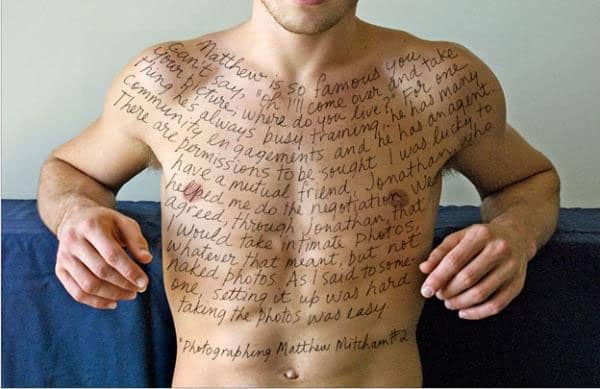 Matthew is so famous you
can't say, "oh I'll come over and take
your picture, where do you live?" For one
thing he's always busy training, he has many
community engagements and he has an agent.
There are permissions to be sought. I was lucky to
have a mutual friend, Jonathan, who
helped me do the negotiation. We
agreed, through Jonathan, that
I would take intimate photos,
whatever that meant, but not
naked photos. As I said to some-
one, setting it up was hard
taking the photos was easy
"Photographing Matthew Mitcham #2